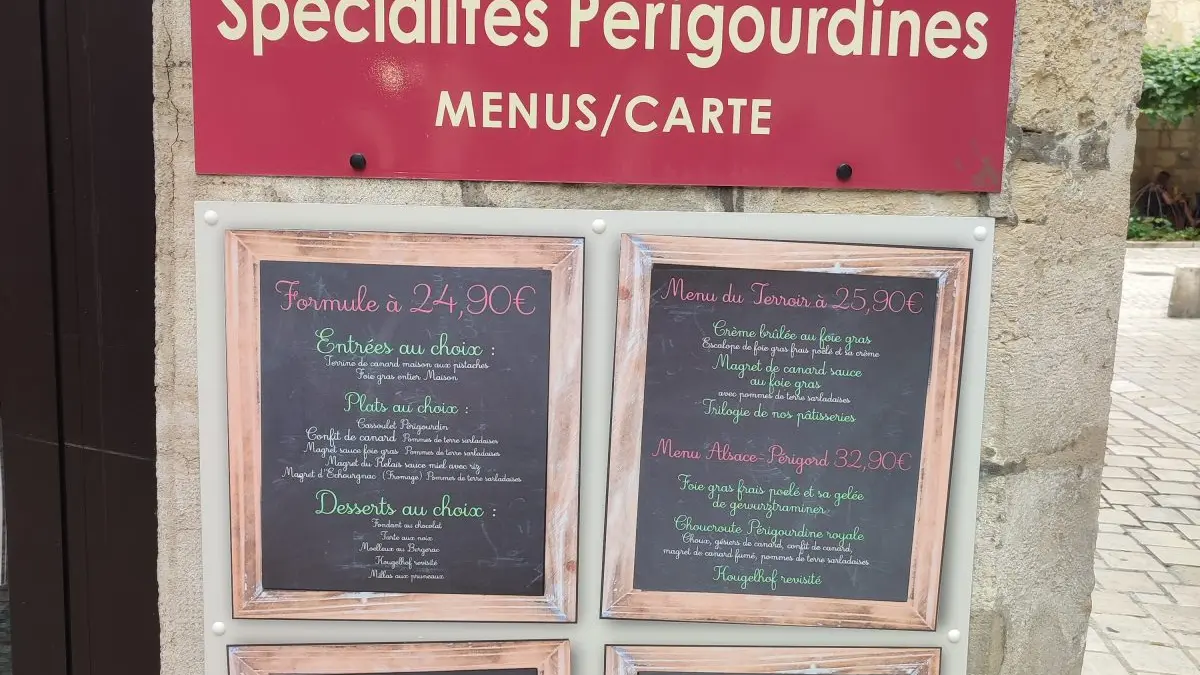 Spécialités Périgourdines
MENUS/CARTE
Formule à 24,90€
Entrées au choix :
Terrine de canard maison aux pistaches
Foie gras entier Maison
Plats au choix :
Cassoulet Périgourdin
Confit de canard Pommes de terre sarladaises
Magret sauce foie gras Pommes de terre sarladaises
Magret du Relais sauce miel avec riz
Magret d'Echourgnac (Fromage) Pommes de terre sarladaises
Desserts au choix :
Fondant au chocolat
Tarte aux noix
Moelleux au Bergerac
Kougelhof revisité
Millas aux pruneaux
Menu du Terroir à 25,90€
Crème brûlée au foie gras
Escalope de foie gras frais poêlé et sa crème
Magret de canard sauce
au foie gras
avec pommes de terre sarladaises
Trilogie de nos pâtisseries
Menu Alsace-Périgord 32,90€
Foie gras frais poelé et sa gelée
de gewurztraminer
Choucroute Périgourdine royale
Choux, gésiers de canard, confit de canard,
magret de canard fumé, pommes de terre sarladaises
Kougelhof revisité